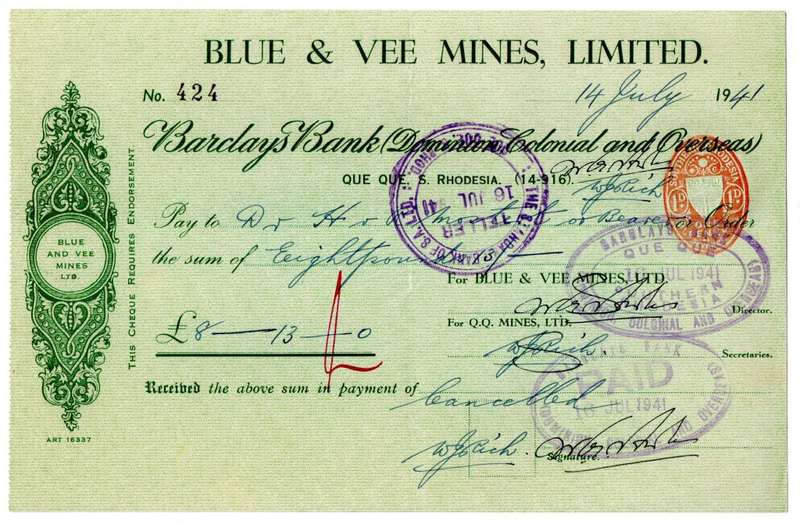 BLUE & VEE MINES, LIMITED.
No. 424
14 July 1941
Barclays Bank (Dominion, Colonial and Overseas)
QUE QUE, S. RHODESIA. (14-916).
W J Rich
1D 1D
Pay to Dr H or Bearer or Order
the sum of Eight pounds 13/-
For BLUE & VEE MINES, LTD.
Director.
£8 — 13 — 0
For Q.Q. MINES, LTD.
W J Rich.
Secretaries.
Received the above sum in payment of
Cancelled
W J Rich.
Signature.
BLUE
AND VEE
MINES
LTD.
ART 16337
THIS CHEQUE REQUIRES ENDORSEMENT
THE STANDARD BANK OF S.A. LTD.
TELLER
16 JUL 41
BARCLAYS BANK
QUE QUE
JUL 1941
SOUTHERN
RHODESIA
COLONIAL AND OVERSEAS)
BANK
PAID
16 JUL 1941